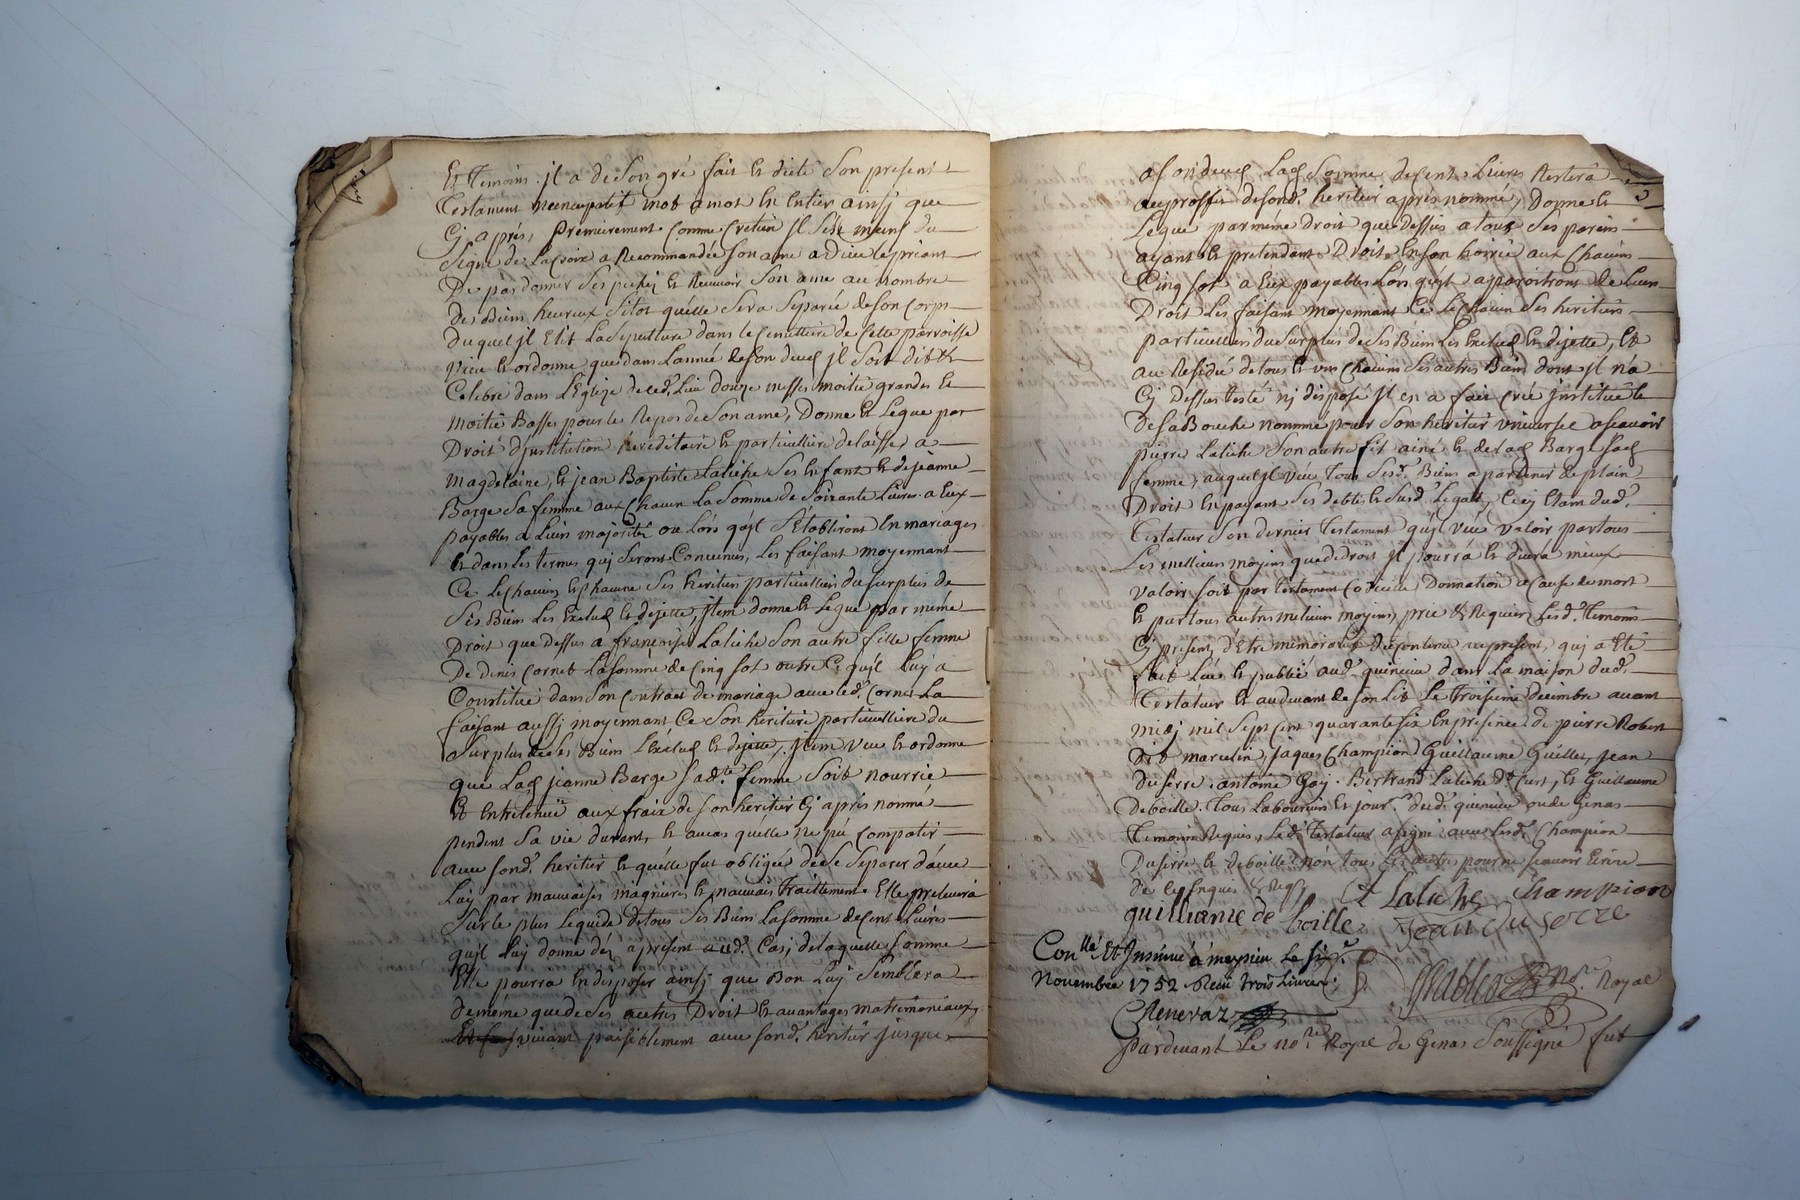 Et Temoins il a de Son gré fait et dicté Son present
Testament nuncupatif mot a mot En Entier ainsj que
Cj apres, Premierement Comme Cretien Il Sest muni du
Signe de La Croix a Recommandée Son ame a Dieu Le priant
De pardonner Ses pechez Et Recevoir Son ame au nombre
des Bien heureux Sitot quelle Sera Separée de Son Corps
duquel jl Elit La Sepulture dans le Cemettiere de Cette parroisse
veut et ordonne que dans Lannée de Son deces jl Soit dit et
Celebré dans L'Eglise dud. Lieu douze messes moitié grandes Et
moitié Basses pour le Repos de Son ame, Donne et Legue par
Droit d'jnstitution hereditaire et particulliere delaisse a
Magdelaine, et jean Baptiste Latiche Ses Enfants et de jeanne
Barge Sa femme aux Chacun La Somme de Soixante Livres a Eux
payables a Leurs majorité ou Lors qu'jls S'Etabliront En mariages
et dans Les termes quj Seront Convenus, Les faisant moyennant
Ce Le Chacun et Chacune Ses heritiers particulliers du Surplus de
Ses Biens Les Exclud et dejette, jtem donne et Legue par méme
Droit que Dessus a françoise Latiche Son autre fille femme
De Denis Cornet La Somme de Cinq Sol outre Ce qu'jl Luy a
Constitué dans Son Contract de mariage avec led. Cornet La
faisant aussj moyennant Ce Son heritiere particulliere du
Surplus de Ses Biens L'Exclud et dejette, jtem veut et ordonne
que Lad. jeanne Barge Sad.te femme Soit nourrie
Et Entretenüe aux fraix de Son heritier Cj apres nommé
pendent Sa vie durant, Et au cas qu'elle ne put Compatir
avec Sond. heritier Et qu'elle fut obligée de Se Separer d'avec
Luy par mauvaises magnieres et mauvais Traittements Elle prelevera
Sur le plus Liquide de tous Ses Biens La Somme de Cent Livres
qu'jl Luy donne dez a present aud. Cas, de laquelle Somme
Elle pourra En disposer ainsj que Bon Luy Semblera
de méme que de Ses autres Droit et avantages matrimoniaux,
vivant paisiblement avec Sond. heritier jusque
a Son deces Lad. Somme de Cent Livres Restera
au proffit de Sond. heritier apres nommé, Donne Et
Legue par méme droit que dessus a tous Ses parens
ayant et pretendant Droit En Son hoirie aux Chacuns
Cinq Sol a Eux payables Lors qu'jls aparoitront de Leurs
Droit Les faisant moyennant Ce Le Chacun Ses heritiers
particulliers du Surplus de Ses Biens Les Exclud et dejette, Et
au Residû de tous et uns Chacuns Ses autres Biens dont jl n'a
Cj dessus testé nj disposé jl en a fait créé jnstitué et
de Sa Bouche nommé pour Son heritier universel a Scavoir
pierre Latiche Son autre fils ainé et de Lad. Barge Sad.
femme, auquel jl veut Tous Sesd. Biens apartenir de plain
Droit En payant Ses debtes et Susd. Legats, Cecj Etant dud.
Testateur Son dernier Testament qu'jl veut valoir par tous
Les meilleurs moyens que de Droit jl pourra et devra mieux
valoir Soit par Testament Codicille Donnation a Cause de mort
Et par tous autres meilleurs moyens, prie et Requiert Lesd. Temoins
Cj presents d'Etre memoratifs du Contenu au present, quj a Eté
fait Leu et publié aud. quincieu dans La maison dud.
Testateur Et au devant de Son Lit Le Troisieme decembre avant
midj mil Sept Cent quarante Six En presence de pierre Robert
dit marcelin, jaques Champion Guillaume Guillet, jean
duserre, antoine Gay, Bertrand Latiche dt Curt, Et Guillaume
Deboille Tous Laboureurs Et jour.rs dud. quincieu ou de Genas
Temoins Requis, Led. Testateur a signé avec Lesd. Champion
Duserre et deboille non tous Les autres pour ne Scavoir Ecrire
de Ce Enquis & Requis
Latiche Champion
guilliaume de boille jean duserre
Con.llé Et Insinué à meyzieu Le Six.e
Novembre 1752 Reçu trois Livres
Chenevaz
No.re Royal
pardevant Le no.re Royal de Genas Soussigné fut